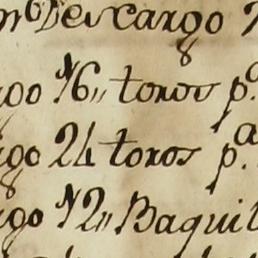 Descargo
go 16,, toros p.ª
go 24 toros p.ª
go 12,, Baquil